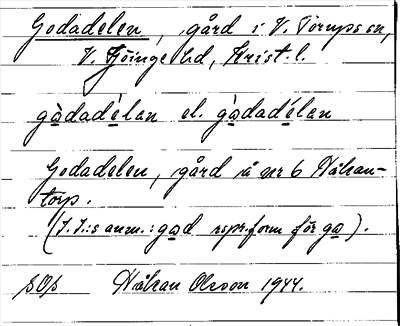 Godadelen, gård i V. Torups sn,
V. Göinge hd, Krist. l.
gòdadélan el. gòdadélan
Godadelen, gård å nr 6 Håkan-
torp.
(I.I:s anm.: god rspr.form för go).
SOS Håkan Olsson 1944.